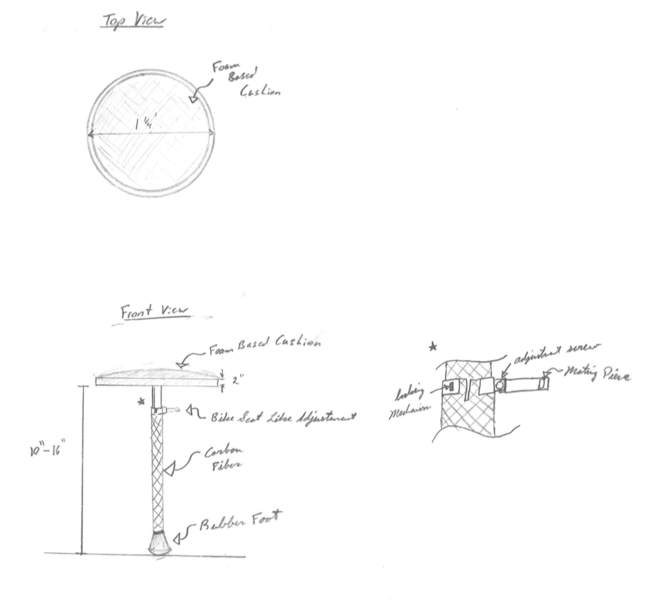 Top View
Foam
Based
Cushion
1 1/4'
Front View
Foam Based Cushion
2"
Bike Seat Like Adjustement
10"-16"
Carbon
Fiber
Rubber Foot
adjustment screw
Mating Piece
locking
Mechanism